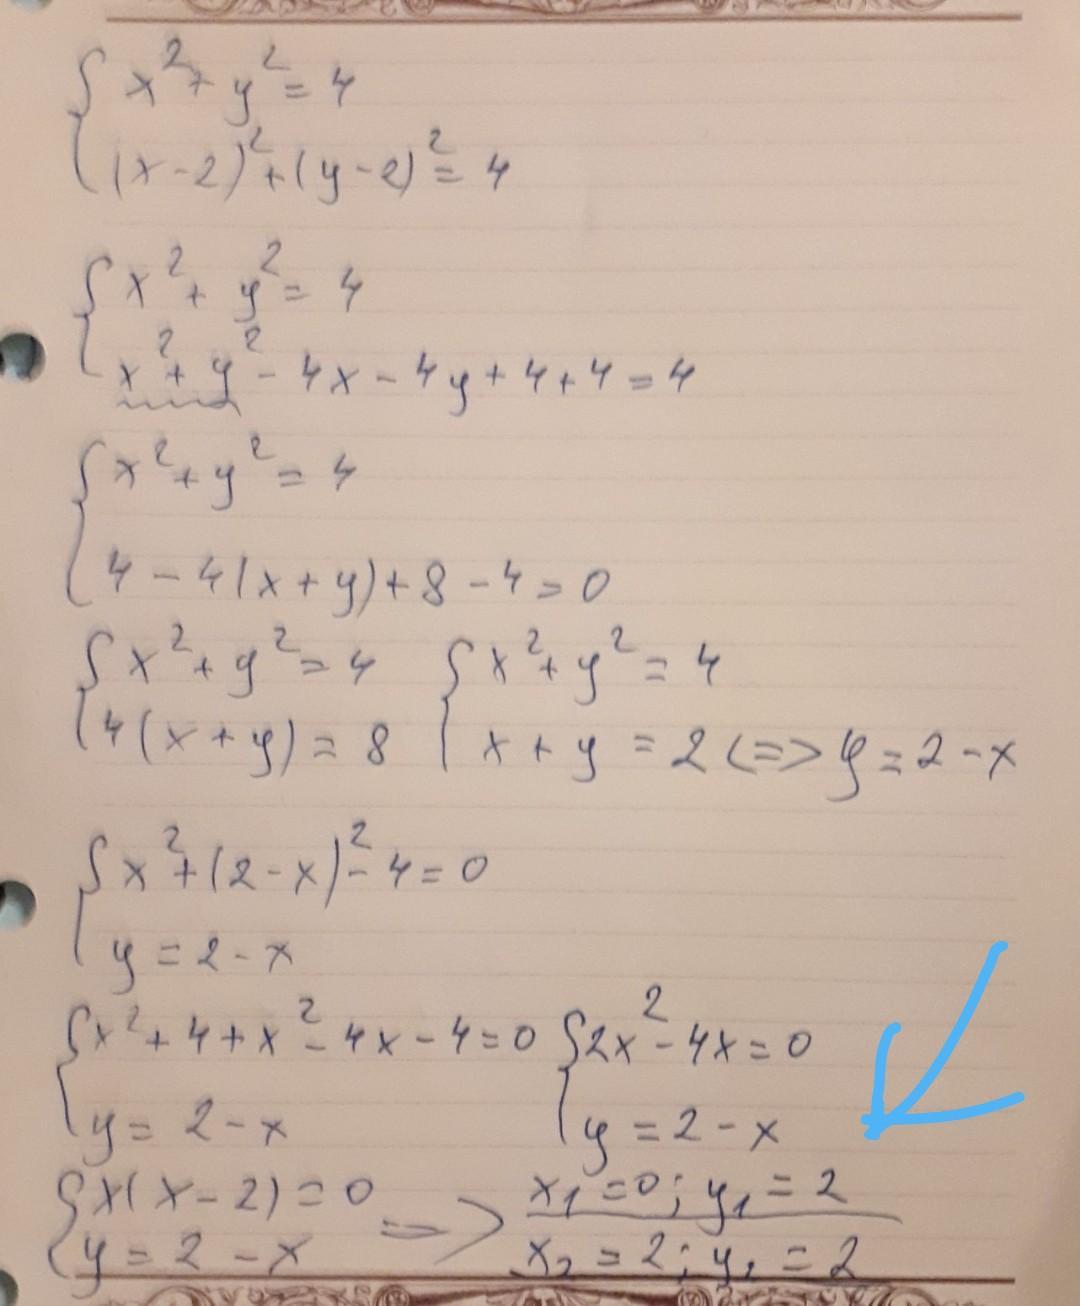 { x² + y² = 4
(x - 2)² + (y - 2)² = 4
{ x² + y² = 4
x² + y² - 4x - 4y + 4 + 4 = 4
{ x² + y² = 4
4 - 4(x + y) + 8 - 4 = 0
{ x² + y² = 4 { x² + y² = 4
4(x + y) = 8 x + y = 2 <=> y = 2 - x
{ x² + (2 - x)² - 4 = 0
y = 2 - x
{ x² + 4 + x² - 4x - 4 = 0 { 2x² - 4x = 0
y = 2 - x y = 2 - x
{ x(x - 2) = 0 => x₁ = 0; y₁ = 2
y = 2 - x x₂ = 2; y₂ = 2